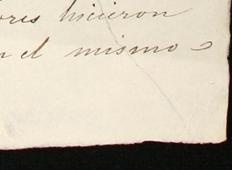 ores hicieron
n el mismo